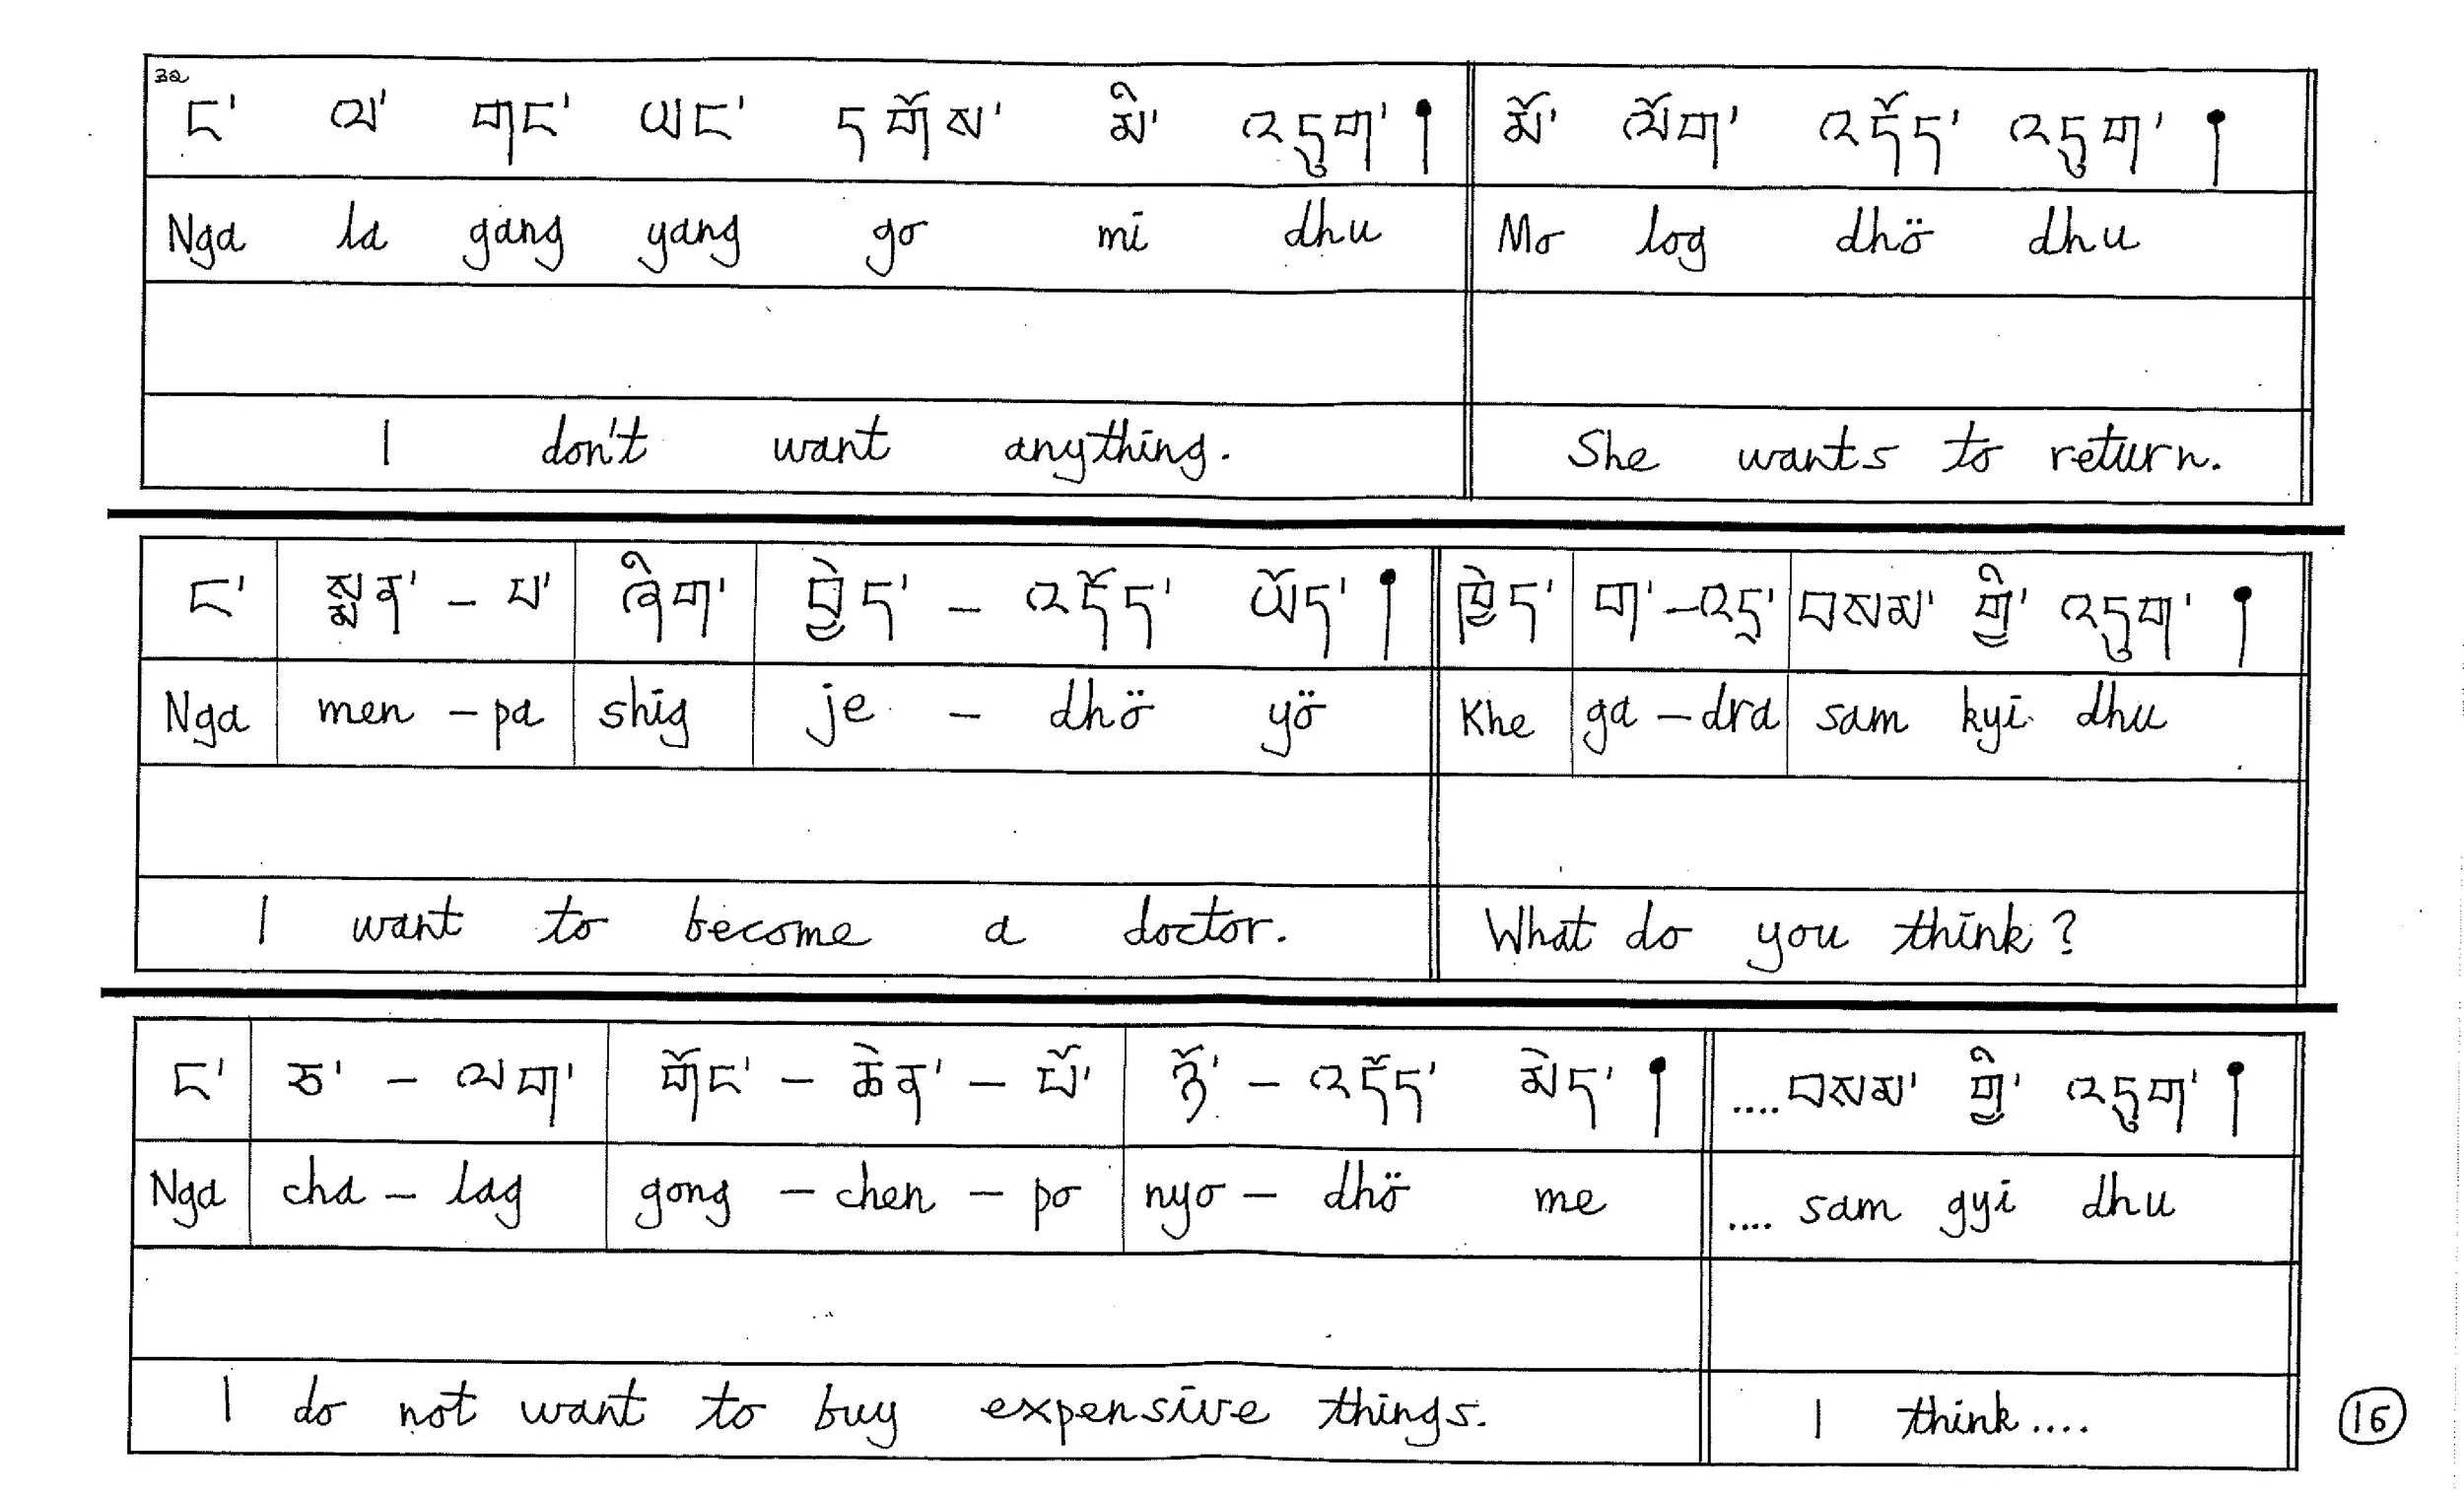 32
ང་ ལ་ གང་ ཡང་ དགོས་ མི་ འདུག་། མོ་ ལོག་ འདོད་ འདུག་།
Nga la gang yang go mi dhu Mo log dhö dhu
I don't want anything. She wants to return.
ང་ སྨན་ - པ་ ཞིག་ བྱེད་ - འདོད་ ཡོད་། ཁྱེད་ ག་ - འདྲ་ བསམ་ གྱི་ འདུག་།
Nga men - pa shig je - dhö yö Khe ga - dra sam kyi dhu
I want to become a doctor. What do you think?
ང་ ཅ་ - ལག་ གོང་ - ཆེན་ - པོ་ ཉོ་ - འདོད་ མེད་། .... བསམ་ གྱི་ འདུག་།
Nga cha - lag gong - chen - po nyo - dhö me .... sam gyi dhu
I do not want to buy expensive things. I think....
16